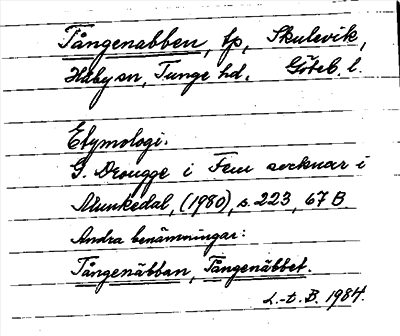 Tångenabben, tp, Skulevik,
Håby sn, Tunge hd. Göteb. l.
Etymologi.
G. Drougge i Fem socknar i
Munkedal, (1980), s. 223, 67 B
Andra benämningar:
Tångenäbban, Tångenäbbet.
L.-t. B. 1984.